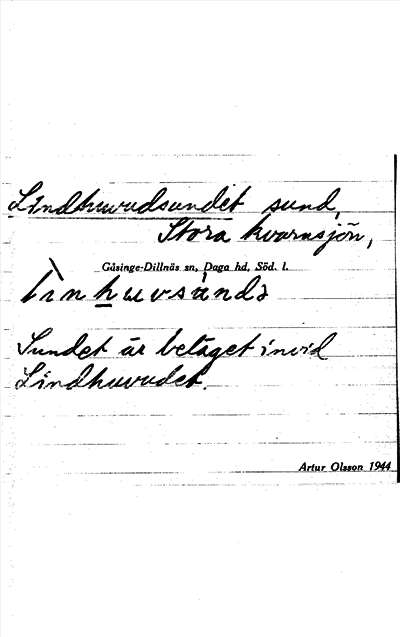 Lindhuvudsundet sund,
Stora kvarnsjön,
Gåsinge-Dillnäs sn, Daga hd, Söd. l.
Sundet är beläget invid
Lindhuvudet.
Artur Olsson 1944